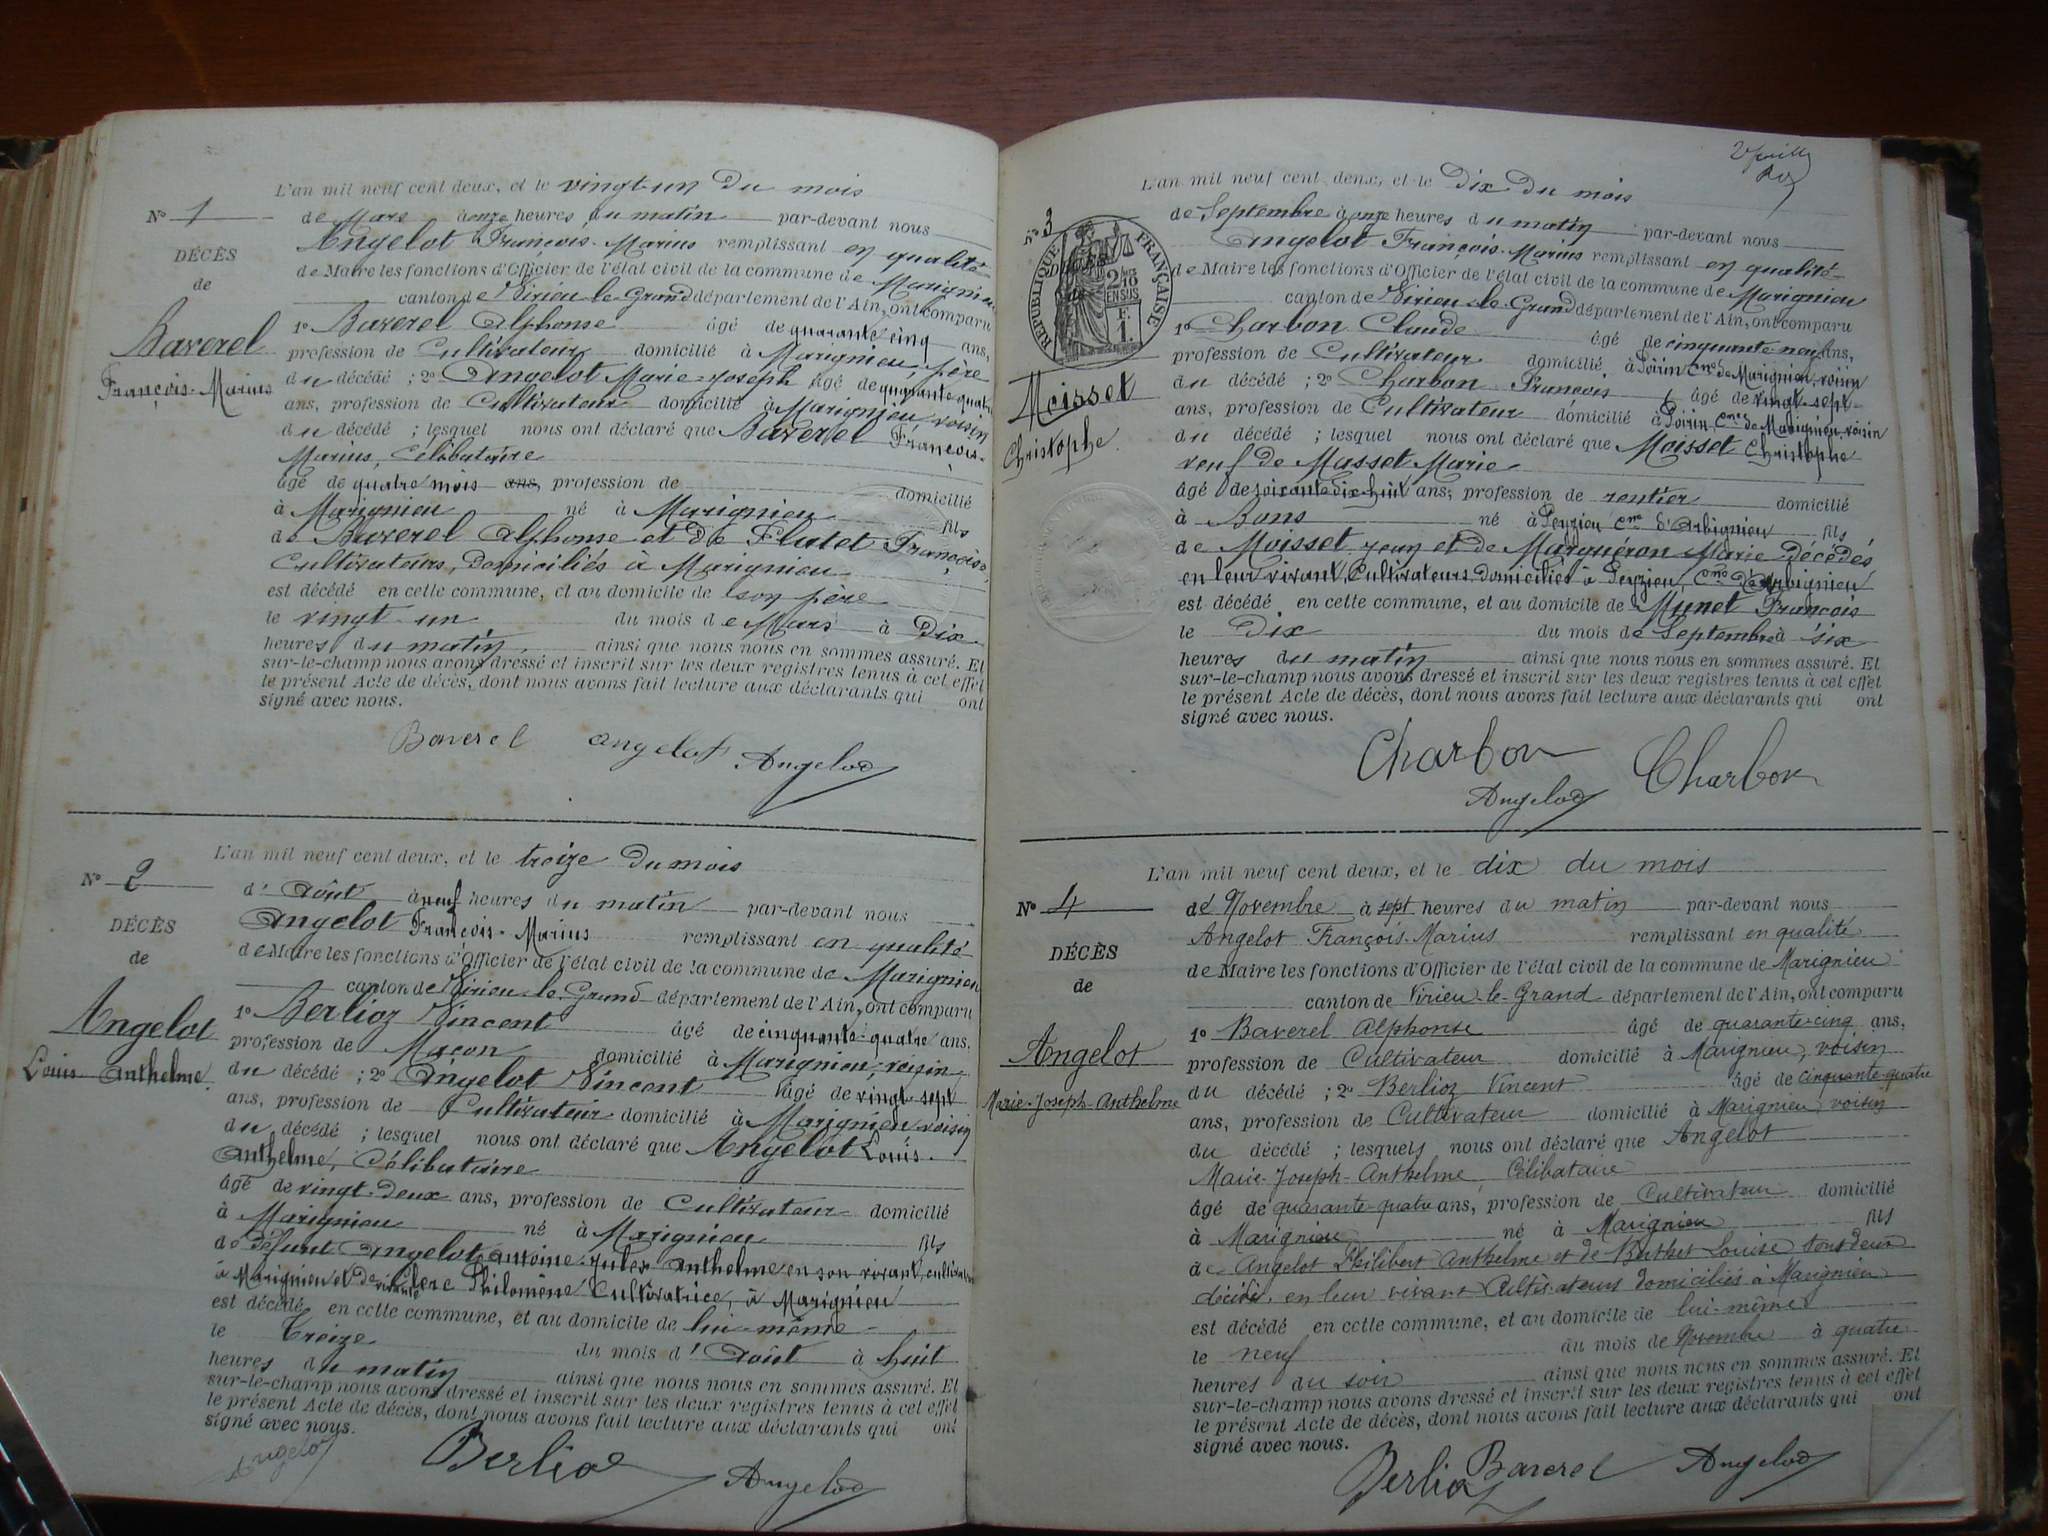 L'an mil neuf cent deux, et le vingt-un du mois
N° 1
de Mars à onze heures du matin par-devant nous
Angelot François-Marius remplissant en qualité
DÉCÈS
de Maire les fonctions d'Officier de l'état civil de la commune de Marignieu
de
canton de Virieu-le-Grand département de l'Ain, ont comparu
Baverel
1° Baverel Alphonse âgé de quarante-cinq ans,
profession de Cultivateur domicilié à Marignieu, père
François-Marius
du décédé ; 2° Angelot Marie-Joseph âgé de quarante-quatre
ans, profession de Cultivateur domicilié à Marignieu, voisin
du décédé ; lesquel nous ont déclaré que Baverel François-
Marius, Célibataire
âgé de quatre mois ans, profession de domicilié
à Marignieu né à Marignieu fils
de Baverel Alphonse et de Flutet Françoise,
Cultivateurs, domiciliés à Marignieu
est décédé en cette commune, et au domicile de son père
le vingt-un du mois de Mars à Dix
heures du matin, ainsi que nous nous en sommes assuré. Et
sur-le-champ nous avons dressé et inscrit sur les deux registres tenus à cet effet
le présent Acte de décès, dont nous avons fait lecture aux déclarants qui ont
signé avec nous.
Baverel Angelot Angelot
L'an mil neuf cent deux, et le treize du mois
N° 2
d'Août à neuf heures du matin par-devant nous
DÉCÈS
Angelot François-Marius remplissant en qualité
de
de Maire les fonctions d'Officier de l'état civil de la commune de Marignieu
canton de Virieu-le-Grand département de l'Ain, ont comparu
Angelot
1° Berlioz Vincent âgé de cinquante-quatre ans,
profession de Maçon domicilié à Marignieu, voisin
Louis-Anthelme
du décédé ; 2° Angelot Vincent âgé de vingt-sept
ans, profession de Cultivateur domicilié à Marignieu, voisin
du décédé ; lesquel nous ont déclaré que Angelot Louis-
Anthelme, Célibataire
âgé de vingt-deux ans, profession de Cultivateur domicilié
à Marignieu né à Marignieu fils
de défunt Angelot Antoine-Jules Anthelme en son vivant, cultivateur
à Marignieu et de vivante Philomène Cultivatrice, à Marignieu
est décédé en cette commune, et au domicile de lui-même
le Treize du mois d'Août à huit
heures du matin ainsi que nous nous en sommes assuré. Et
sur-le-champ nous avons dressé et inscrit sur les deux registres tenus à cet effet
le présent Acte de décès, dont nous avons fait lecture aux déclarants qui ont
signé avec nous.
Angelot Berlioz Angelot
L'an mil neuf cent deux, et le Dix du mois
N° 3
de Septembre à onze heures du matin par-devant nous
Angelot François-Marius remplissant en qualité
RÉPUBLIQUE FRANÇAISE
2/10 EN SUS
F. 1
de Maire les fonctions d'Officier de l'état civil de la commune de Marignieu
canton de Virieu-le-Grand département de l'Ain, ont comparu
1° Charbon Claude âgé de cinquante-neuf ans,
profession de Cultivateur domicilié à Poirin Cne de Marignieu, voisin
Moisset
du décédé ; 2° Charbon François âgé de vingt-sept
ans, profession de Cultivateur domicilié à Poirin, Cne de Marignieu, voisin
Christophe
du décédé ; lesquel nous ont déclaré que Moisset Christophe
veuf de Masset Marie
âgé de soixante-dix-huit ans, profession de rentier domicilié
à Bons né à Peyzieu Cne d'Arbignieu fils
de Moisset Jean et de Marguéron Marie décédés
en leur vivant, Cultivateurs, domiciliés à Peyzieu, Cne d'Arbignieu
est décédé en cette commune, et au domicile de Munet François
le Dix du mois de Septembre à six
heures du matin ainsi que nous nous en sommes assuré. Et
sur-le-champ nous avons dressé et inscrit sur les deux registres tenus à cet effet
le présent Acte de décès, dont nous avons fait lecture aux déclarants qui ont
signé avec nous.
Charbon Charbon
Angelot
L'an mil neuf cent deux, et le dix du mois
N° 4
de Novembre à sept heures du matin par-devant nous
Angelot François-Marius remplissant en qualité
DÉCÈS
de Maire les fonctions d'Officier de l'état civil de la commune de Marignieu
de
canton de Virieu-le-Grand département de l'Ain, ont comparu
1° Baverel Alphonse âgé de quarante-cinq ans,
Angelot
profession de Cultivateur domicilié à Marignieu, voisin
Marie-Joseph-Anthelme
du décédé ; 2° Berlioz Vincent âgé de cinquante-quatre
ans, profession de Cultivateur domicilié à Marignieu, voisin
du décédé ; lesquels nous ont déclaré que Angelot
Marie-Joseph-Anthelme Célibataire
âgé de quarante-quatre ans, profession de Cultivateur domicilié
à Marignieu né à Marignieu fils
de Angelot Philibert Anthelme et de Berthet Louise tous deux
décédés, en leur vivant Cultivateurs domiciliés à Marignieu
est décédé en cette commune, et au domicile de lui-même
le neuf du mois de Novembre à quatre
heures du soir ainsi que nous nous en sommes assuré. Et
sur-le-champ nous avons dressé et inscrit sur les deux registres tenus à cet effet
le présent Acte de décès, dont nous avons fait lecture aux déclarants qui ont
signé avec nous.
Berlioz Baverel Angelot